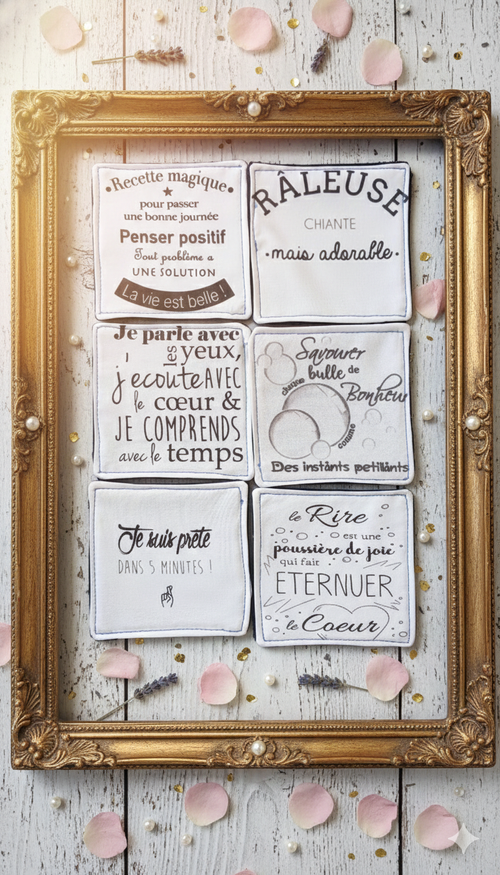 Recette magique
pour passer
une bonne journée
Penser positif
Tout problème a
UNE SOLUTION
La vie est belle !
RÂLEUSE
CHIANTE
mais adorable
Je parle avec
les yeux,
j'écoute AVEC
le cœur &
JE COMPRENDS
avec le temps
Savourer
chaque bulle de
Bonheur
comme
Des instants petillants
Je suis prête
DANS 5 MINUTES !
le Rire
est une
poussière de joie
qui fait
ETERNUER
le Coeur